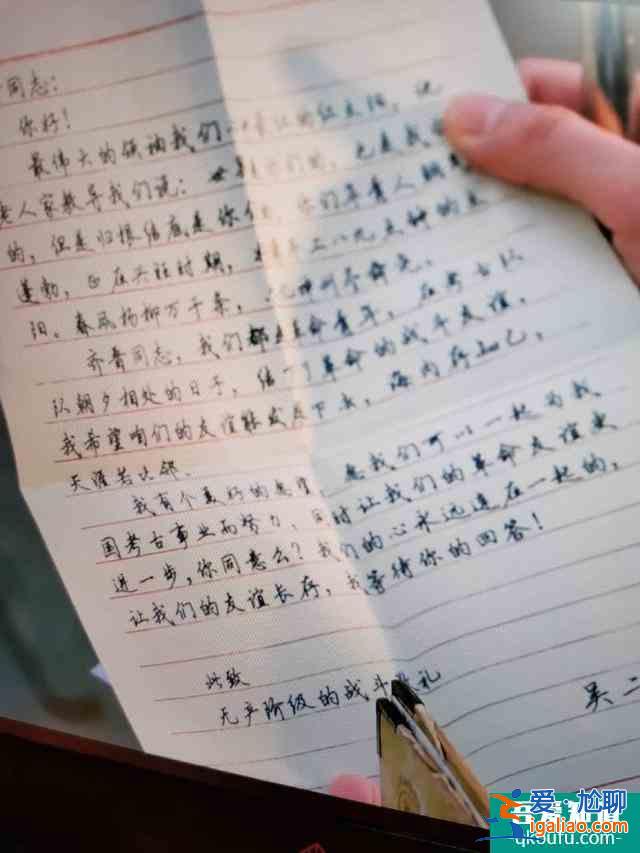 同志:
你好!
最伟大的领袖我们心中最红的红太阳,他
老人家教导我们说:世界是你们的,也是我
的,但是归根结底是你们,你们年青人朝
蓬勃,正在兴旺时期,八九点钟的太
阳。春风杨柳万千条,六亿神州尽舜尧。
齐香同志,我们都是革命青年,在考古队
队朝夕相处的日子,结了革命的战斗友谊。
我希望咱们的友谊能发展下去,海内存知己,
天涯若比邻。
我有个美好的愿望,愿我们可以一起为我
国考古事业而努力,同时让我们的革命友谊更
进一步,你同意么?我们的心永远连在一起的,
让我们的友谊长存,我等待你的回答!
此致
无产阶级的战斗礼
吴二
爱·尴聊
igaliao.com
qk5ufu.com-